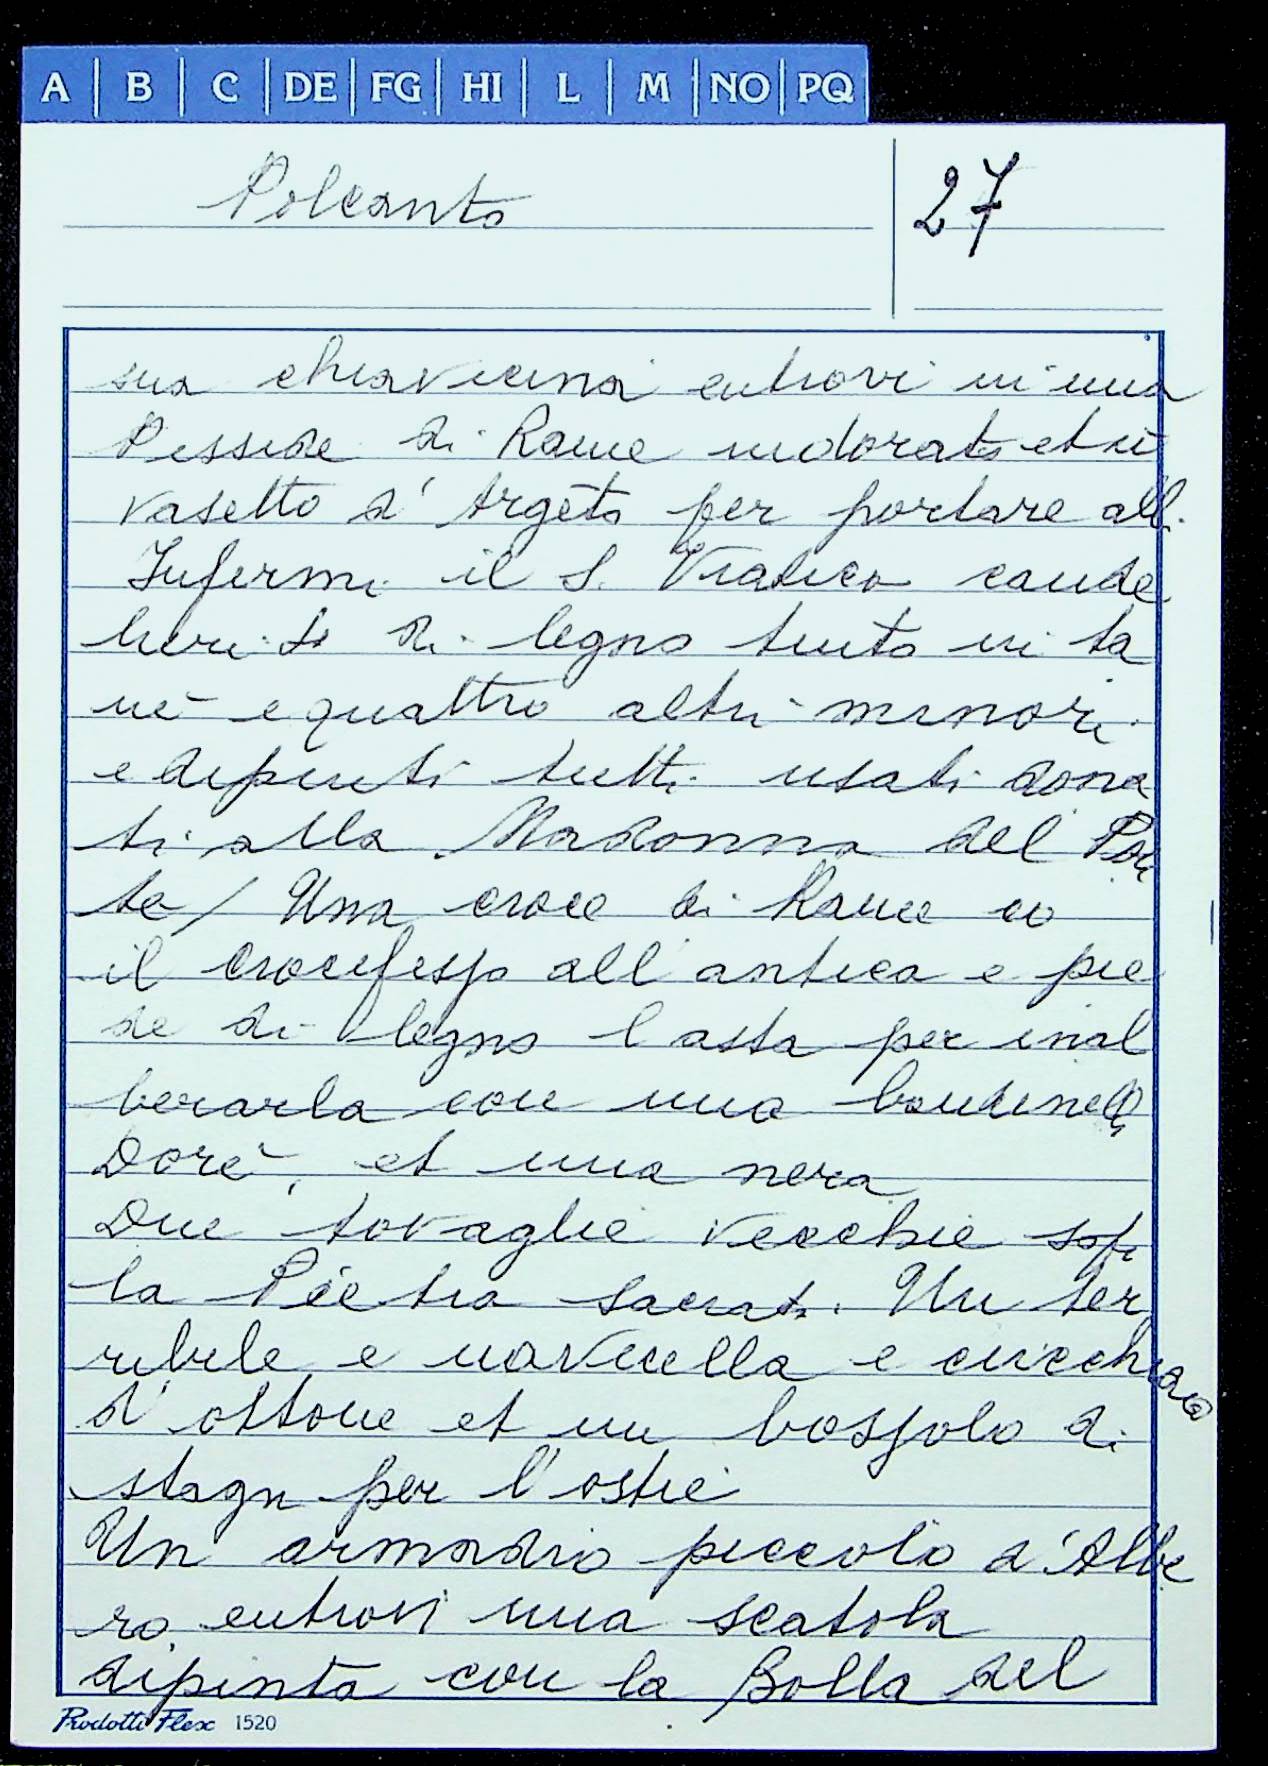 A B C DE FG HI L M NO PQ
Polcanto
27
sua chiavicina entrovi in una
Pisside di Rame indorato et ũ
vasetto d'Argẽto per portare alli
Infermi il S. Viatico cande
lieri di legno tinto in ta
nè e quattro altri minori
e dipinti tutti usati dona
ti alla Madonna del Pon
te / Una croce di Rame co
il crocifesso all'antica e pie
de di legno l asta per inal
berarla con una bandinella
Dorè, et una nera
Due tovaglie vecchie sop
la Pietra sacrata. Un ter
ribile e navicella e cucchiaio
d'ottone et un bossolo di
stagn per l'ostie
Un armadio piccolo d'Albe
ro entrovi una scatola
dipinta con la Bolla del
Prodotti Flex 1520